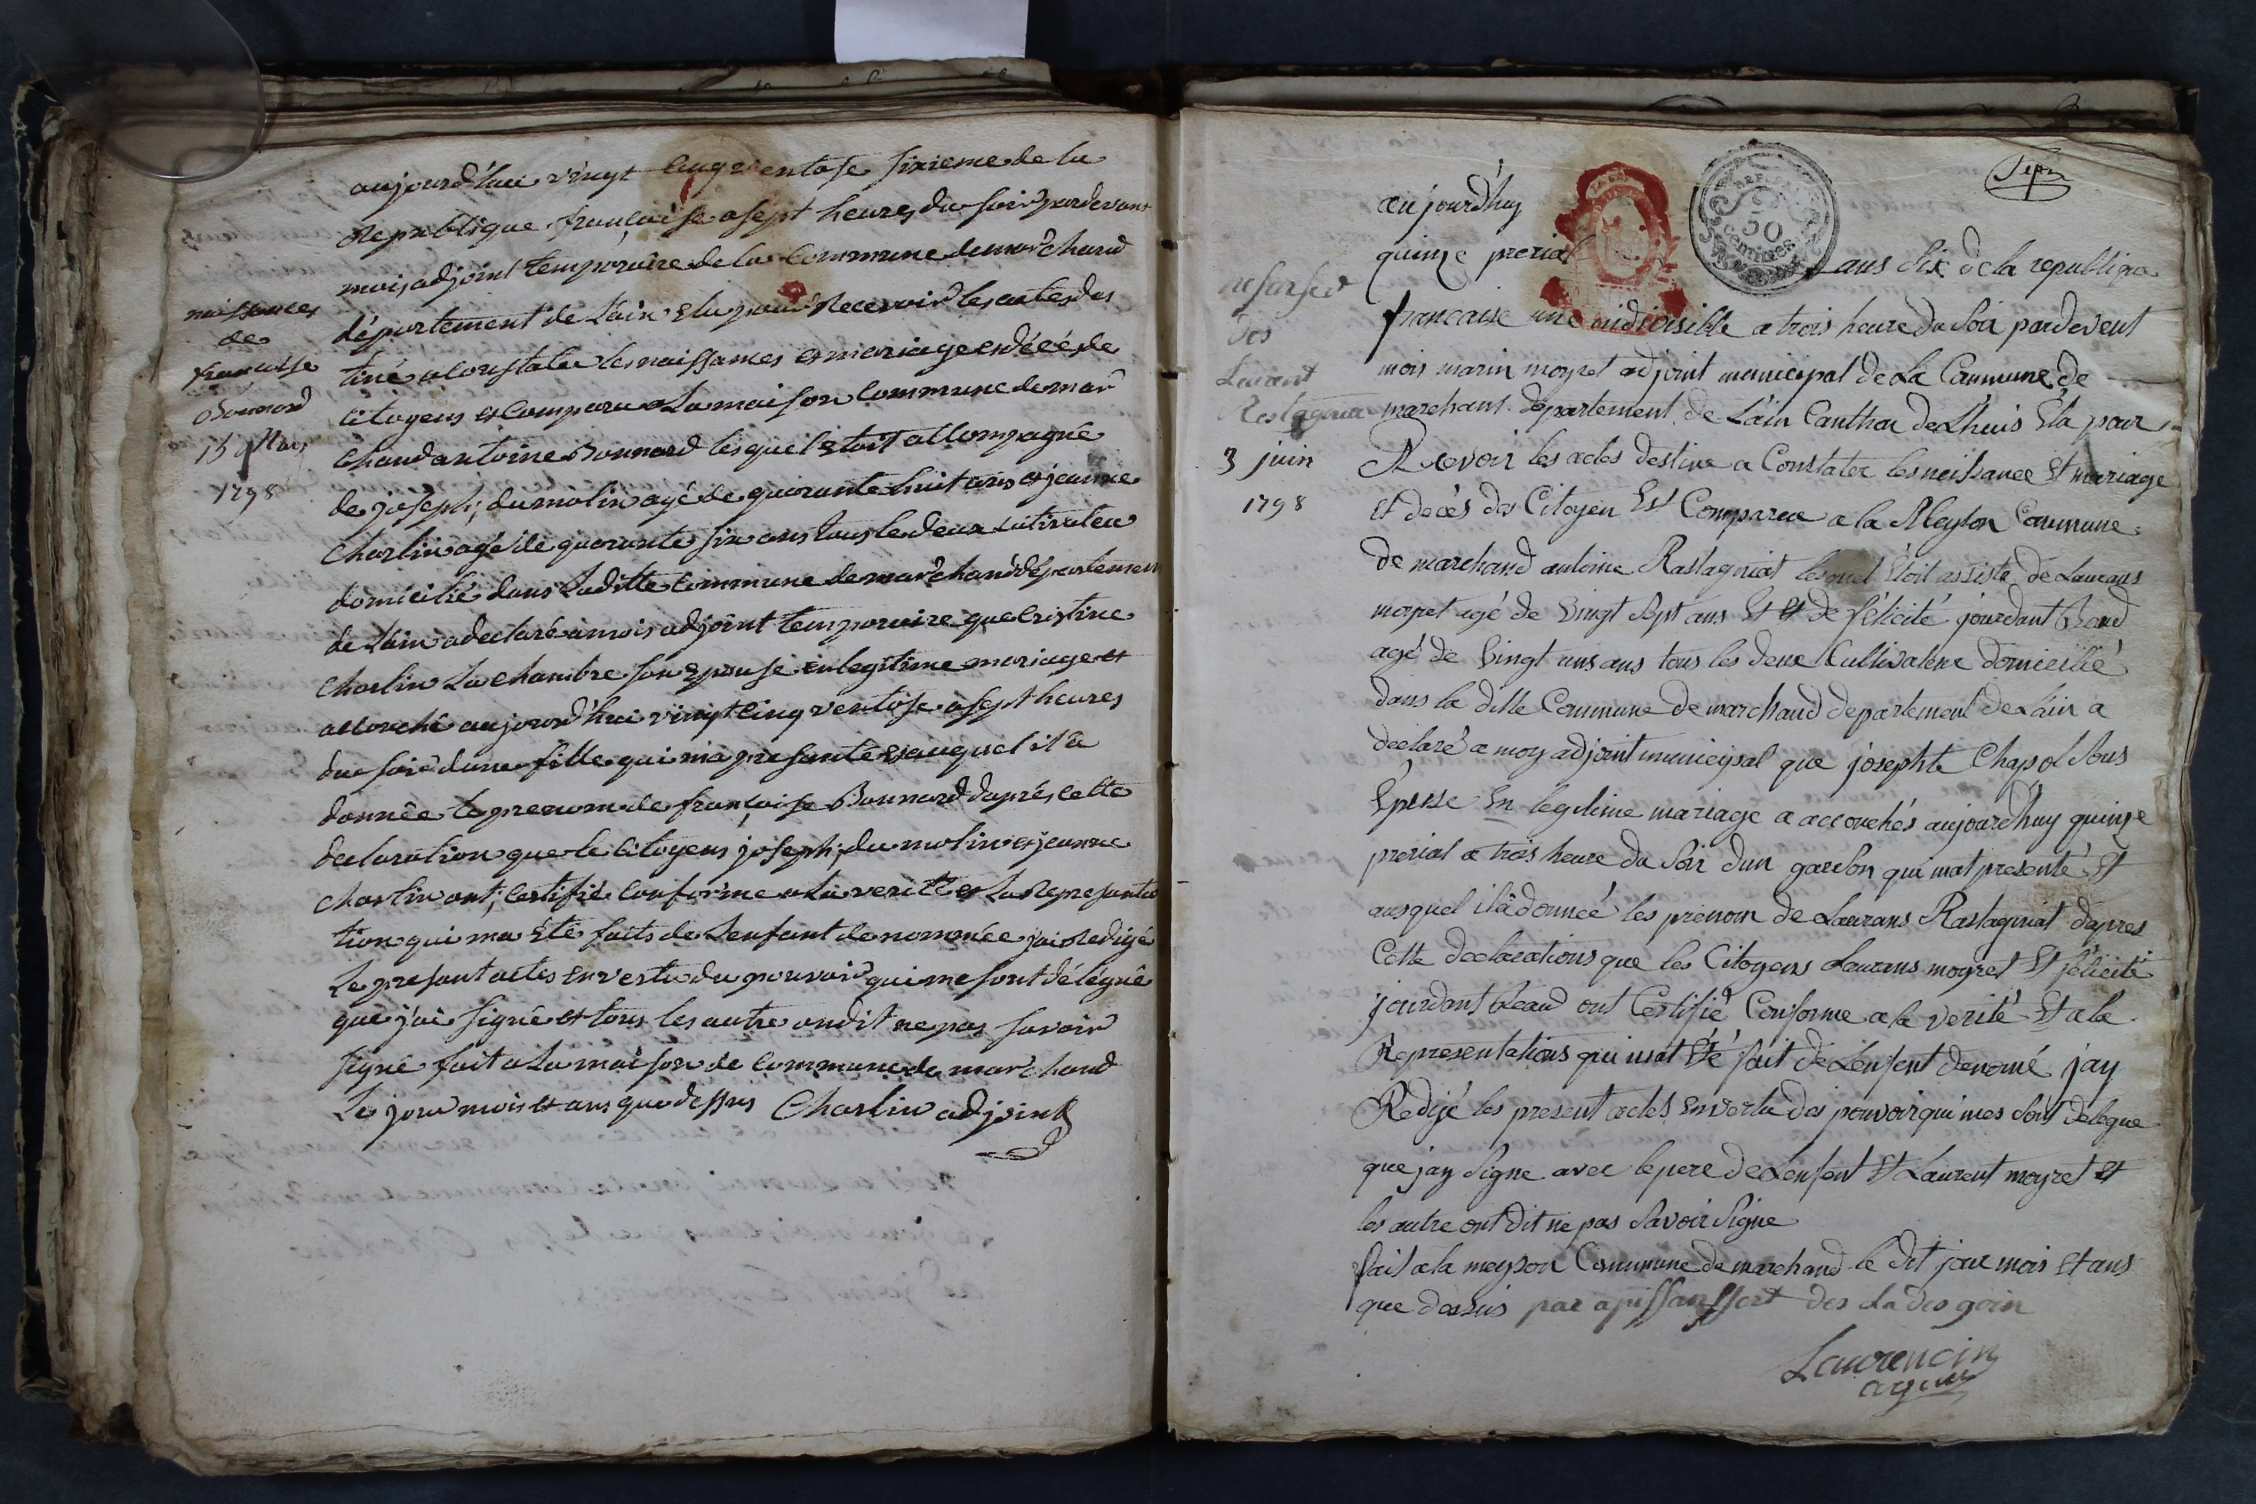 aujourd'hui vingt cinq ventose sixieme de la
Republique françaisse a sept heures du soir pardevant
mois adjoint temporaire de la commune de marchand
département de Lain elu pour Recevoir les actes des
tiné a constater les naissances et mariage et décés de
citoyens et comparu a La maison Commune de mar
chand antoine Bonnard lesquel etoit accompagnê
de joseph, dumolin agé de quarante huit ans et jeanne
Charlin agé de quarante six ans tous le deux cultivateu
domicilié dans Laditte commune de marchand département
de Lain a declaré a mois adjoint temporaire que Cristine
Charlin La chambre son epouse en legitime mariage et
accouché aujourd'hui vingt cinq ventose a sept heures
du soir dune fille qui ma presanté et auquel il a
donnée le prenom de françoise Bonnard d'aprés cette
declaration que le citoyens joseph, du molin et jeanne
Charlin ont, certifié conforme a La verité et La Represanta
tion qui ma Eté faits de Lenfant denommée jai Redigé
Le presant actes en vertu du pouvoir qui me sont délégué
que j'ai signé et tous les autre on dit ne pas savoir
signé fait a La maison de commune de marchand
Le jour mois et ans que dessus Charlin adjoint
naissances
de
francoise
Bonnard
15 Mars
1798
Sept
REP. FRA.
50
centimes
aujourd'huy
quinze prerial ans six de la republique
francaise une indivisible a trois heure du Soir pardevent
mois marin moyret adjoint municipal de La Commune de
marchant département de L'ain Canthon de Lhuis Elu pour
Recevoir les actes destine a Constater les neissance Et mariage
Et decés des Citoyen Est Comparue a la Meyson Commune
de marchand antoine Rastagniat lesquel Etoit assisté de Laurans
moyret agé de Vingt Sept ans Et Et de félicité jourdant
agé de Vingt uns ans tous les deux Cultivateur domicilié
dans la ditte Commune de marchand departement de Lain a
declaré a moy adjoint municipal que josephte Chapol Sous
Epouse En legitime mariage a accouchés aujourd'huy quinze
prerial a trois heure du Soir dun garcson qui mat presenté Et
ausquel il a donnée les prenom de Laurans Rastagniat d'apres
Cette declarations que les Citoyens Laurans moyret Et félicité
jourdant ont Certifié Conforme a la verité Et a la
Representations qui mat Eté fait de Lenfent denomé jay
Redijé les present actes en vertu des pouvoir qui mes Sont delegue
que jay Signe avec le pere de Lenfent Et Laurent moyret Et
les autre ont dit ne pas Savoir Signe
fait a la meyson Commune de marchand le dit jour mois Et ans
que dessus par
Laurencin
agent
des
Laurant
3 juin
1798